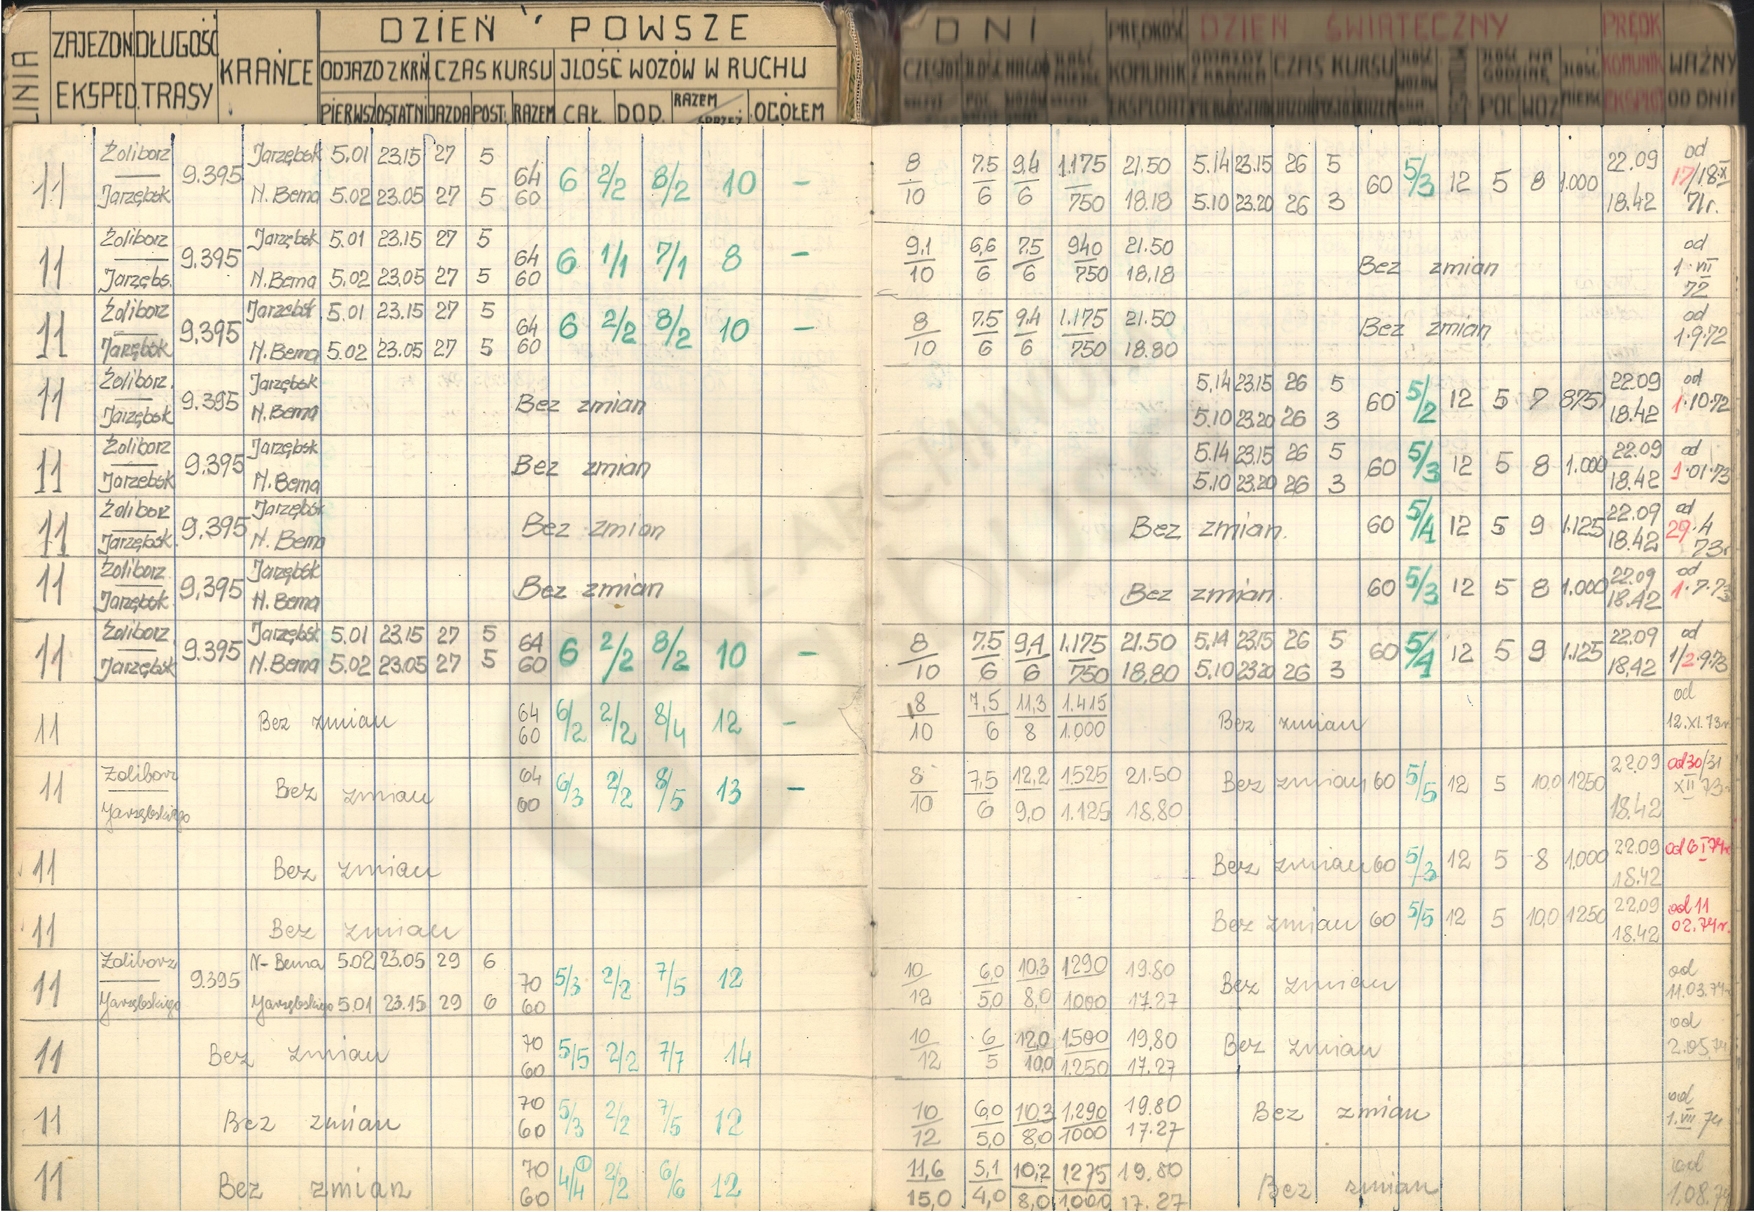 LINIA ZAJEZDN. DŁUGOŚĆ KRAŃCE DZIEŃ POWSZE DNI PRĘDKOŚĆ DZIEŃ ŚWIĄTECZNY PRĘDK
EKSPED. TRASY ODJAZD Z KRŃ CZAS KURSU JLOŚĆ WOZÓW W RUCHU KOMUNIK CZAS KURSU KOMUNIK WAŻNY
PIERWSZ OSTATNI JAZDA POST. RAZEM CAŁ. DOD. RAZEM OGÓŁEM EKSPLOAT OD DNIA
Żoliborz Jarzębsk 5.01 23.15 27 5 64 8 7.5 9,4 1.175 21.50 5.14 23.15 26 5 22.09 od
11 9.395 6 2/2 8/2 10 – 60 5/3 12 5 8 1.000 17/18 XI
Jarzębsk N. Bema 5.02 23.05 27 5 60 10 6 6 750 18.18 5.10 23.20 26 3 18.42 71r.
Żoliborz Jarzębsk 5.01 23.15 27 5 64 9,1 6,6 7,5 940 21.50 od
11 9.395 6 1/1 7/1 8 – Bez zmian 1 VII
Jarzębs. N. Bema 5.02 23.05 27 5 60 10 6 6 750 18.18 72
Żoliborz Jarzębsk 5.01 23.15 27 5 64 8 7.5 9.4 1.175 21.50 od
11 9.395 6 2/2 8/2 10 – Bez zmian
Jarzębsk N. Bema 5.02 23.05 27 5 60 10 6 6 750 18.80 1.9.72
Żoliborz Jarzębsk 5.14 23.15 26 5 22.09 od
11 9.395 Bez zmian 60 5/2 12 5 7 875
Jarzębsk N. Bema 5.10 23.20 26 3 18.42 1.10.72
Żoliborz Jarzębsk 5.14 23.15 26 5 22.09 od
11 9.395 Bez zmian 60 5/3 12 5 8 1.000
Jarzębsk N. Bema 5.10 23.20 26 3 18.42 1.01.73
Żoliborz Jarzębsk 22.09 od
11 9.395 Bez zmian Bez zmian. 60 5/4 12 5 9 1.125 29.4
Jarzębsk N. Bema 18.42 73r
Żoliborz Jarzębsk 22.09 od
11 9.395 Bez zmian Bez zmian 60 5/3 12 5 8 1.000
Jarzębsk N. Bema 18.42 1.7.73
Żoliborz Jarzębsk 5.01 23.15 27 5 64 8 7.5 9,4 1.175 21.50 5.14 23.15 26 5 22.09 od
11 9.395 6 2/2 8/2 10 – 60 5/4 12 5 9 1.125
Jarzębsk N. Bema 5.02 23.05 27 5 60 10 6 6 750 18.80 5.10 23.20 26 3 18.42 1/2.9.73
64 8 7,5 11,3 1.415 od
11 Bez zmian 6/2 2/2 8/4 12 – Bez zmian
60 10 6 8 1.000 12.XI.73r
Żoliborz 64 8 7,5 12,2 1525 21.50 22.09 od 30/31
11 Bez zmian 6/3 2/2 8/5 13 – Bez zmian 60 5/5 12 5 10,0 1250 XII 73r
Jarzębskiego 60 10 6 9,0 1.125 18.80 18.42
11 Bez zmian Bez zmian 60 5/3 12 5 8 1.000 22.09 od 6 I 74r
18.42
11 Bez zmian Bez zmian 60 5/5 12 5 10,0 1250 22.09 od 11
18.42 02.74r.
Żoliborz N-Bema 5.02 23.05 29 6 70 10 6,0 10,3 1290 19.80 od
11 9.395 5/3 2/2 7/5 12 Bez zmian
Jarzębskiego Jarzębskiego 5.01 23.15 29 6 60 12 5,0 8,0 1000 17.27 11.03.74r
70 10 6 12,0 1.500 19,80 od
11 Bez zmian 5/5 2/2 7/7 14 Bez zmian
60 12 5 10,0 1.250 17.27 2.05.74
70 10 6,0 10,3 1.290 19.80 od
11 Bez zmian 5/3 2/2 7/5 12 Bez zmian
60 12 5,0 8,0 1000 17.27 1.VII 74
70 11,6 5,1 10,2 1275 19.80 od
11 Bez zmian 4/4 ① 2/2 6/6 12 Bez zmian
60 15,0 4,0 8,0 1.000 17.27 1.08.74
Z ARCHIWUM